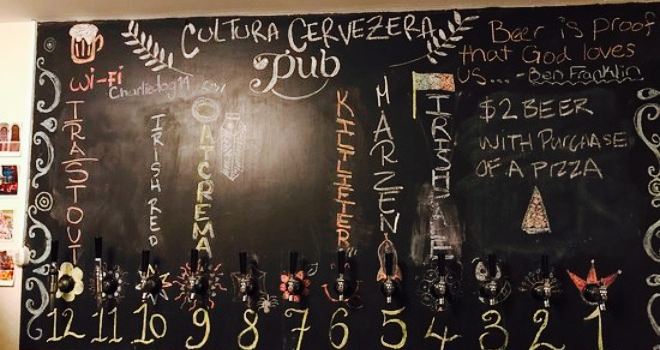 CULTURA CERVEZERA
Pub
Beer is proof
that God loves
us.... - Ben Franklin
Wi-Fi
Charliedog14
IRA STOUT
IRISH RED
OATCREMA
KILTLIFTER
MARZEN
IRISH ALE
$2 BEER
WITH PURCHASE
OF A PIZZA
12 11 10 9 8 7 6 5 4 3 2 1